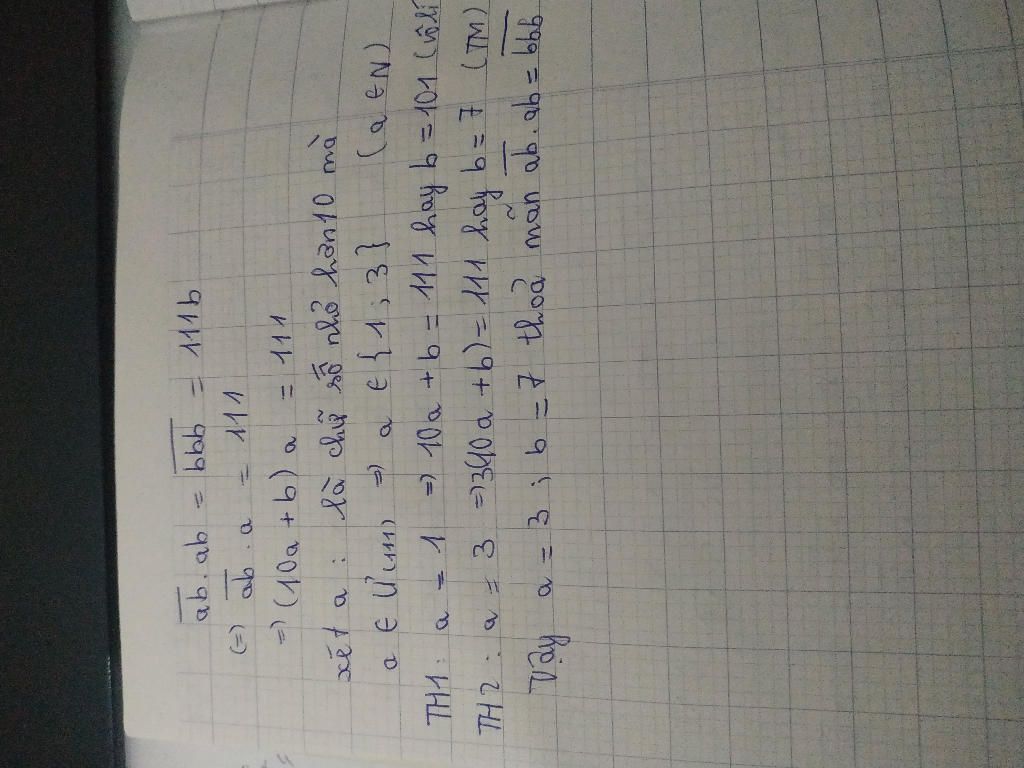 ab̅.ab = b̅b̅b̅ = 111b
(=) a̅b̅.a = 111
=> (10a + b) a = 111
xét a : là chữ số nhỏ hơn 10 mà
a ∈ Ư(111) => a ∈ {1 ; 3} (a ∈ N)
TH1: a = 1 => 10a + b = 111 hay b = 101 (vôlí
TH2 : a = 3 => 3(10a + b) = 111 hay b = 7 (TM)
Vậy a = 3 ; b = 7 thoả mãn a̅b̅.ab = b̅b̅b̅